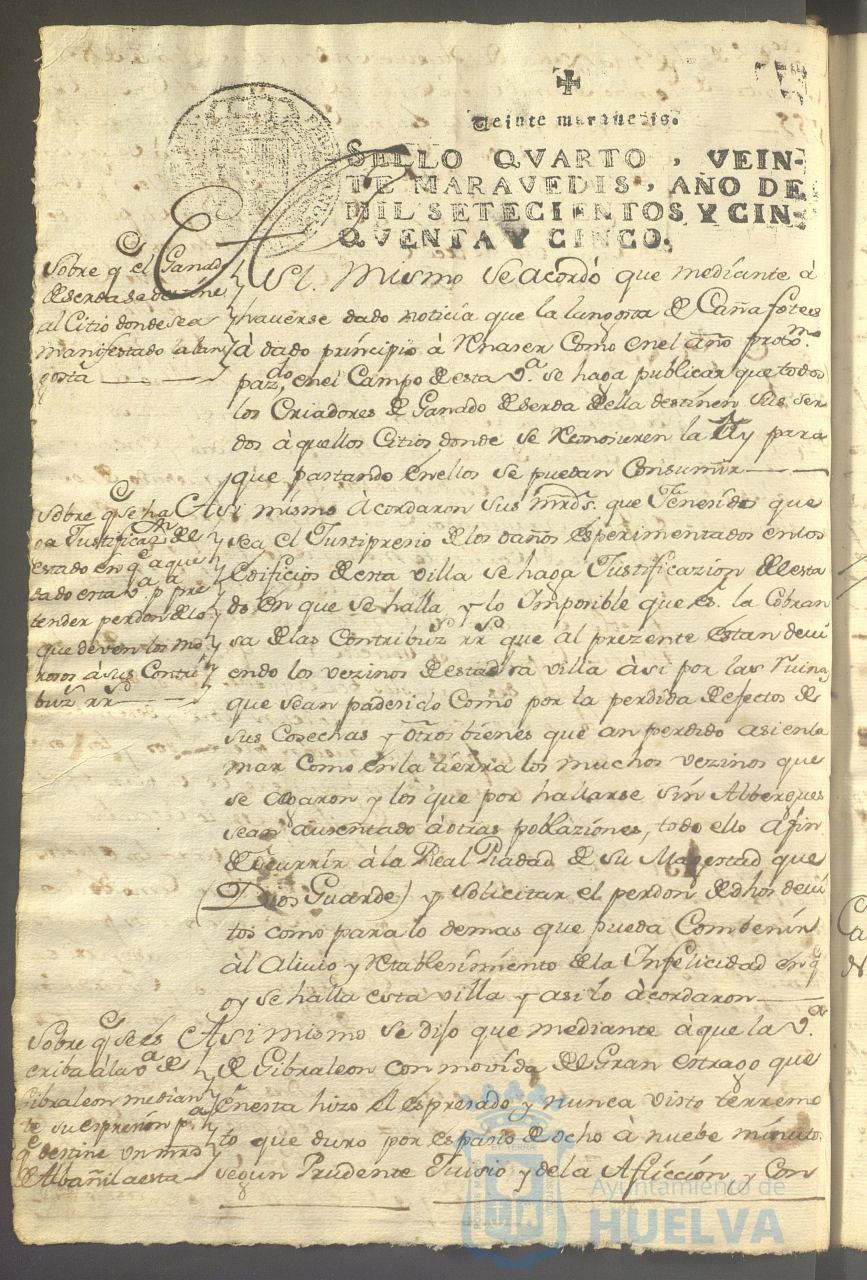 Veinte maravedis.
SELLO QVARTO, VEIN-
TE MARAVEDIS, AÑO DE
MIL SETECIENTOS Y CIN-
QVENTA Y CINCO.
Sobre q el Ganado
de serda se destine
al Citio donde sea
manifestado la lan
gosta
Asi mismo se acordó que mediante à
hauerse dado noticia que la langosta de Cañafotes
à dado principio à Renaser Como en el año proto.mo
pazdo, en el Campo de esta Va. se haga publicar que todos
los Criadores de Ganado de serda de ella destinen sus ser
dos à quellos Citios donde se Reconosieren la ay para
que pastando en ellos se puedan Consumir
Sobre q se ha
ga Justificazn del
estado en q a que
dado esta va pa pre
tender perdon de lo
que deven los mo
rosos à sus Contri
buzs rrs
Asi mismo Acordaron sus mrds. que fenesido que
sea el Justipresio de los daños esperimentados en los
Edificios de esta villa se haga Justificazion del esta
do en que se halla y lo Imposible que es la Cobran
sa de las Contribuzs rrs que al prezente estan devi
endo los vezinos de esta dha villa àsi por las Ruinas
que sean padesido Como por la perdida de efectos de
sus Cosechas y otros bienes que an perdido asi en la
mar Como en la tierra los muchos vezinos que
se aogaron y los que por hallarse sin Albergues
sean ausentado à otras poblaziones, todo ello a fin
de Ocurrir à la Real Piadad de su Magestad que
(Dios Guarde) y solicitar el perdon de dhos devi
tos como para lo demas que pueda Combenir
àl Aliuio y Retablesimiento de la Infelicidad en q
oy se halla esta villa y asi lo àcordaron
Sobre q se es
criba à la va de
Gibraleon median
te su espresion pa
q destine un mro
de Albañil a esta
Asi mismo se dijo que mediante à que la Va.
de Gibraleon con movida del Gran estrago que
en esta hizo el espresado y nunca visto terremo
to que duro por espasio de ocho à nuebe minutos
segun Prudente Juisio y de la Aflicción y Con
Ayuntamiento de
HUELVA